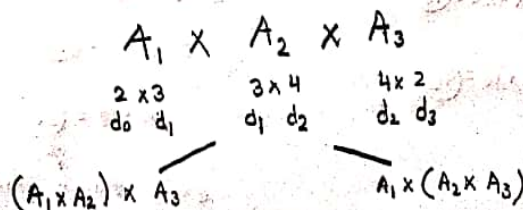 A₁ × A₂ × A₃
2 × 3 3 × 4 4 × 2
d₀ d₁ d₁ d₂ d₂ d₃
(A₁ × A₂) × A₃ A₁ × (A₂ × A₃)